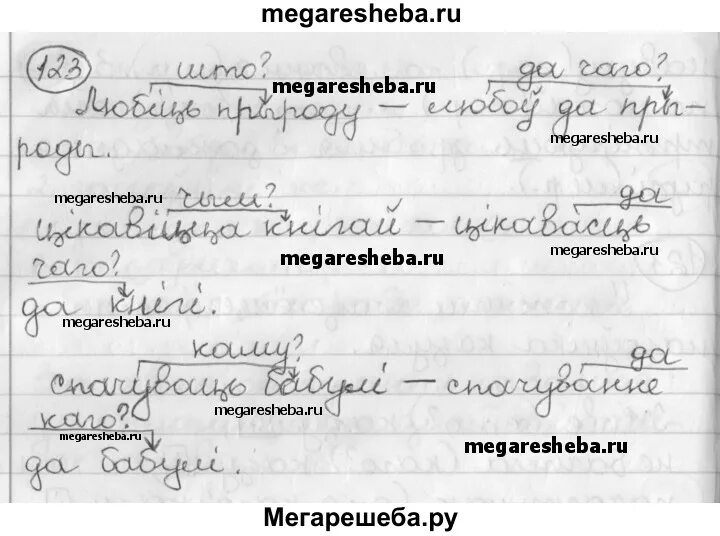 megaresheba.ru
123 што? да чаго?
megaresheba.ru
Любіць прыроду — любоў да пры-
megaresheba.ru
роды.
megaresheba.ru чым? да
цікавіцца кнігай — цікавасць
megaresheba.ru megaresheba.ru
чаго?
да кнігі.
megaresheba.ru
каму? да
спачуваць бабулі — спачуванне
megaresheba.ru
каго?
megaresheba.ru megaresheba.ru
да бабулі.
Мегарешеба.ру